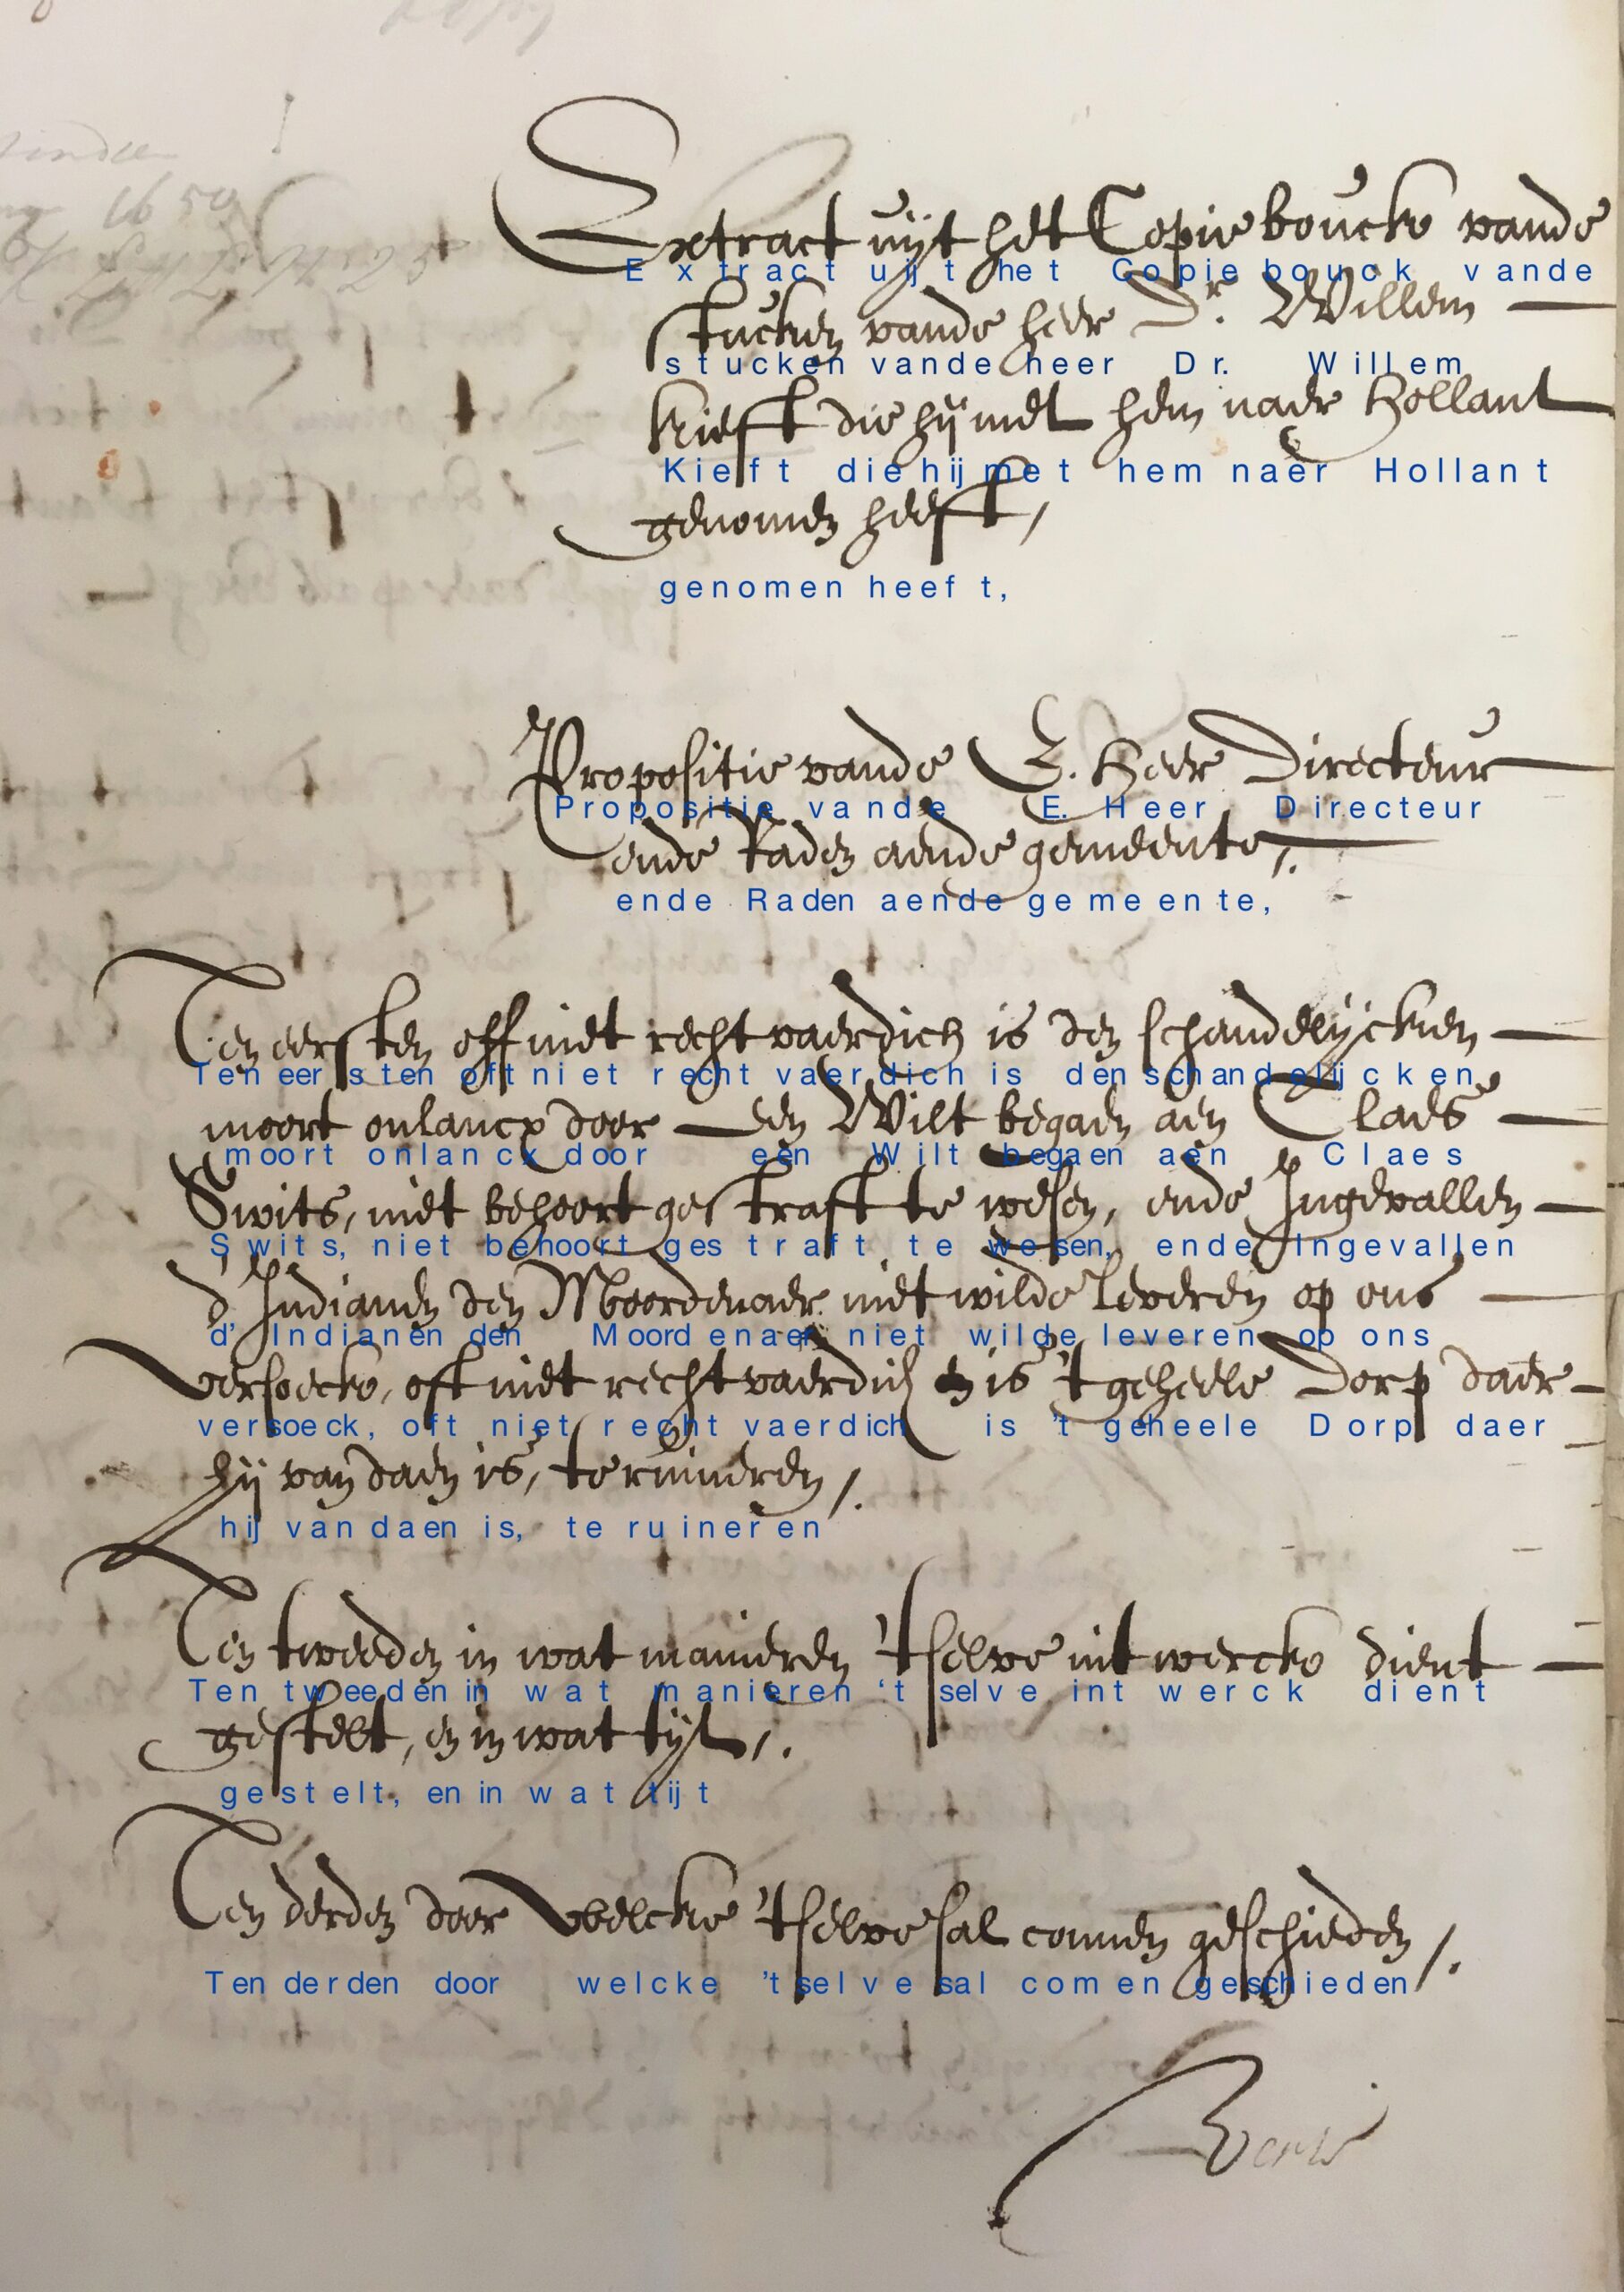 Extract uijt het Copie bouck vande
Extract uijt het Copie bouck vande
stucken vande heer Dr. Willem
stucken vande heer Dr. Willem
Kieft die hij met hem naer Hollant
Kieft die hij met hem naer Hollant
genomen heeft,
genomen heeft,
Propositie vande E. Heer Directeur
Propositie vande E. Heer Directeur
ende Raden aende gemeente,
ende Raden aende gemeente,
Ten eersten off niet rechtvaerdich is den schandelijcken
Ten eersten oft niet recht vaerdich is den schandelijcken
moort onlancx door een Wilt begaen aen Claes
moort onlancx door een Wilt begaen aen Claes
Swits, niet behoort gestraft te wesen, ende Ingevallen
Swits, niet behoort gestraft te wesen, ende Ingevallen
d'Indianen den Moordenaer niet wilde leveren op ons
d' Indianen den Moordenaer niet wilde leveren op ons
versoeck, oft niet rechtvaerdich is 't geheele Dorp daer
versoeck, oft niet recht vaerdich is 't geheele Dorp daer
hij van daen is, te ruineren
hij van daen is, te ruineren
Ten tweeden in wat manieren 'tselve int werck dient
Ten tweeden in wat manieren 't selve int werck dient
gestelt, en in wat tijt
gestelt, en in wat tijt
Ten derden door welcke 'tselve sal comen geschieden
Ten derden door welcke 't selve sal comen geschieden